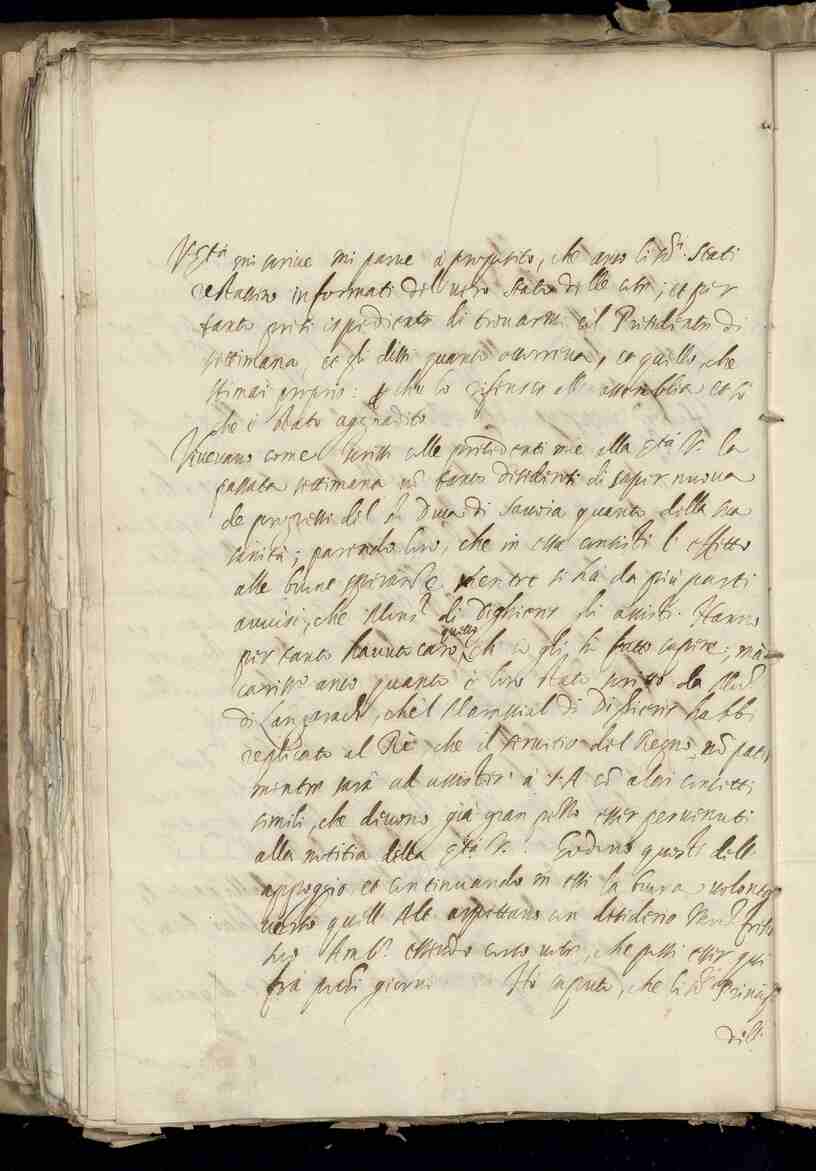 V. S.tà qui scrive mi parve à proposito, che anco li s.ri Stati
restassino informati del vero stato delle cose; et per
tanto presi ispediente di trovarmi col Presidente di
settimana, et gli dissi quanto occorreva, et quello, che
stimai proprio: che lo riferisca all'assemblea et sò
che è stato aggradito
Vivevano come scrissi alle precedenti mie alla S.tà V. la
passata settimana nō tanto desiderosi di saper nuova
de progressi del s.r Duca di Savoia quanto della sua
sanità; parendo loro, che in essa consisti l'effetto
alle buone speranze mentre si hà da più parti
avvisi, che Mons.r di Dighieres li assisti. Hanno
per tanto havuto caro quello che io gli hò fatto sapere; mà
cariss.o anco quanto è loro stato scritto da Mons.r
di Langarach, che'l Marescial di Dighieres habbi
replicato al Rè che il servitio del Regno nō pati
mentre sarà ad assister à S. A. cō altri concetti
simili, che devono già gran pezzo esser pervenuti
alla notitia della S.tà V. Godono questi dell'
appoggio et continuando in essi la buona volontà
verso quell'Alt. aspettano con desiderio
suo Amb.r essendo certo, che possi esser qui
frà pochi giorni. Hò saputo, che li s.ri Principi
dell'